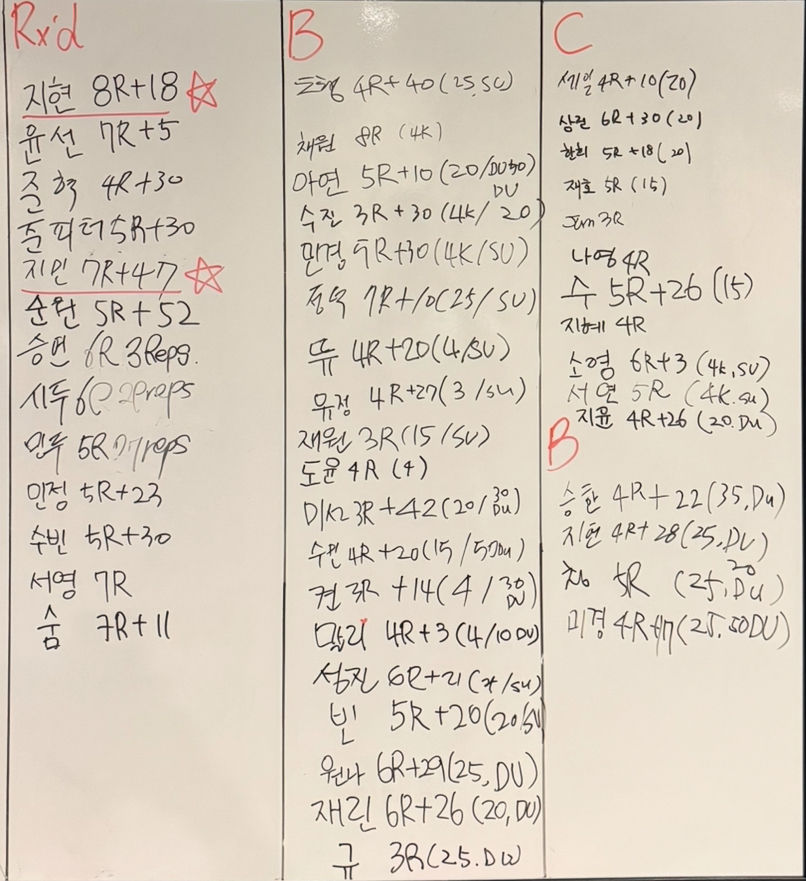 Rx'd
지현 8R+18
윤선 7R+5
준혁 4R+30
준피터 5R+30
지민 7R+47
순완 5R+52
승연 6R 3Reps.
시두 6R reps
민투 5R 27reps
민정 5R+23
수빈 5R+30
서영 7R
숨 7R+11
B
4R+40(25,SU)
채원 8R (4K)
아연 5R+10(20/DU30)
DU
수진 3R+30(4K/20)
민경 5R+30(4K/SU)
정욱 7R+10(25/SU)
뮤 4R+20(4/SU)
유정 4R+27(3/SU)
재원 3R(15/SU)
도윤 4R (4)
미선 3R+42(20/30DU)
수민 4R+20(15/50DU)
켠 3R+14(4/30DU)
말리 4R+3(4/10DU)
성진 6R+21(/SU)
빈 5R+20(20/SU
원나 6R+29(25,DU)
재린 6R+26(20,DU)
규 3R(25.DU)
C
세일 4R+10(20)
상진 6R+30(20)
5R+18(20)
재호 5R(15)
Jem 3R
나영 4R
수 5R+26(15)
지혜 4R
소영 6R+3(4K,SU)
서연 5R (4K.SU)
지윤 4R+26(20.DU)
B
승환 4R+22(35,DU)
지현 4R+28(25,DU)
창 5R (25,30DU)
미경 4R+17(25.50DU)